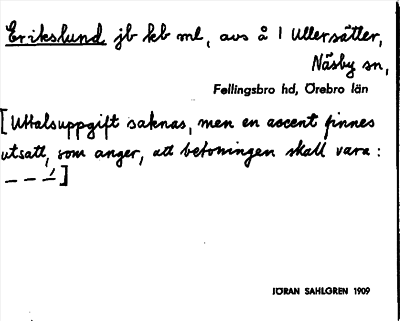 Erikslund jb kb ml, avs å 1 Ullersätter,
Näsby sn,
Fellingsbro hd, Örebro län
[Uttalsuppgift saknas, men en accent finnes
utsatt, som anger, att betoningen skall vara :
_ _ _́ ]
JÖRAN SAHLGREN 1909